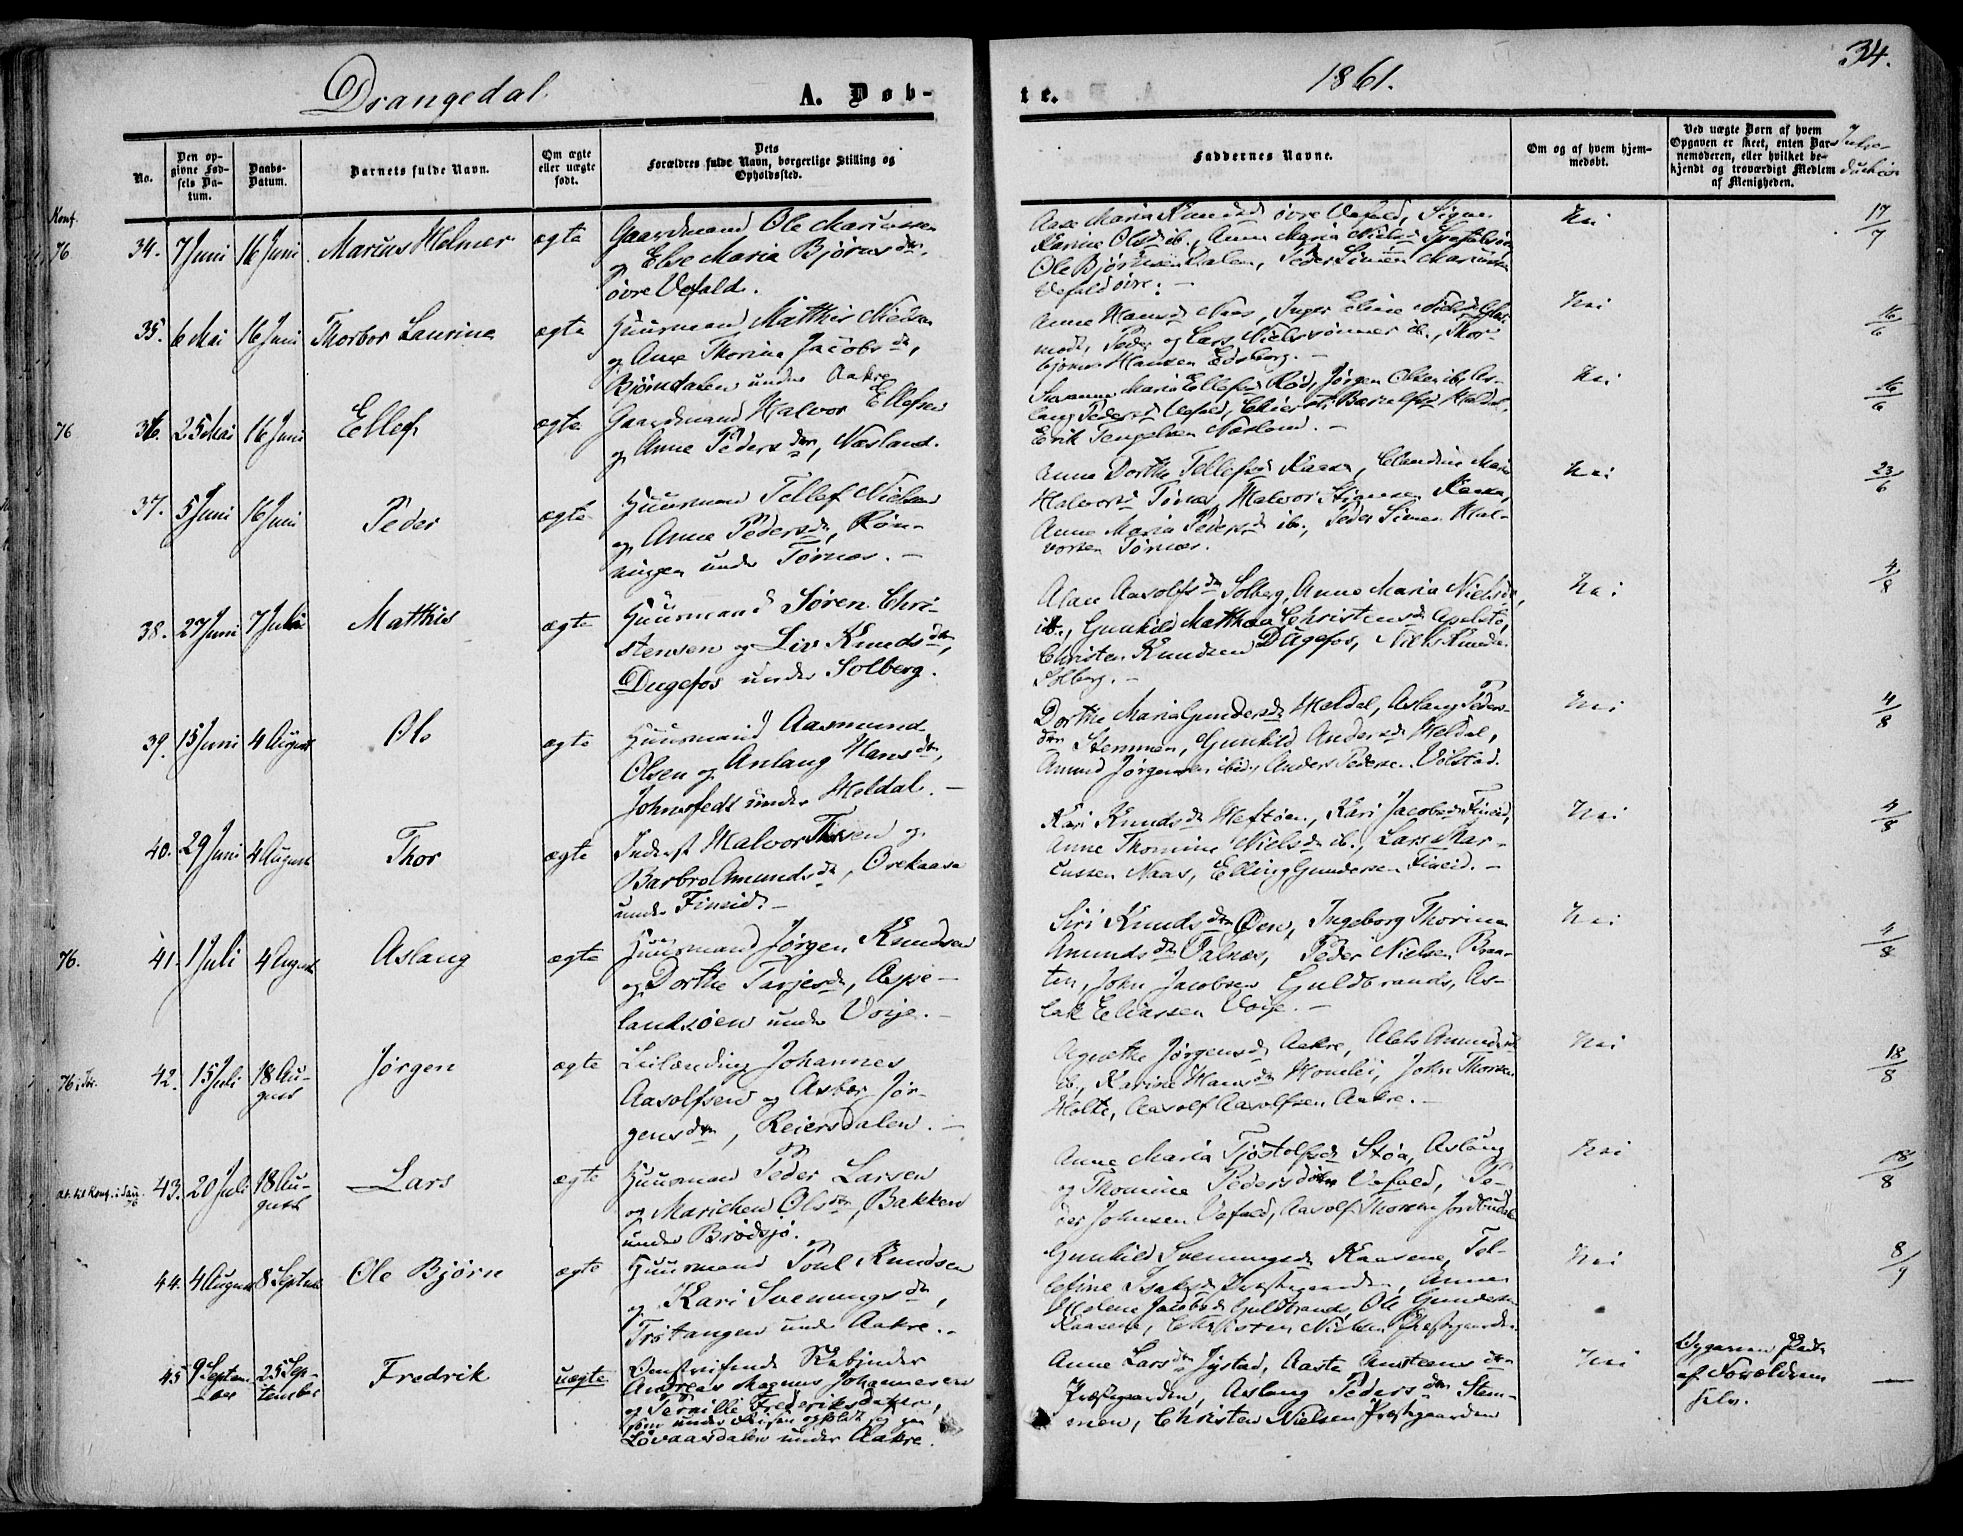 Drangedal
A. Døb-
te.
1861.
34.
No.
Den opgivne Fødsels Datum.
Daabs-Datum.
Barnets fulde Navn.
Om ægte eller uægte født.
Dets Forældres fulde Navn, borgerlige Stilling og Opholdssted.
Faddernes Navne.
Om og af hvem hjemmedøbt.
Ved uægte Børn af hvem Opgaven er skeet, enten Barnemoderen, eller hvilket bekjendt og troværdigt Medlem af Menigheden.
Konf.
76 34. 7 Juni 16 Juni Marius Helmer ægte
Gaardmand Ole Mariussen
og Else Maria Bjørnsdr,
øvre Vefald.
Aase Maria Knudsd øvre Vefald, Signe
Karine Olsd ib., Anne Maria Nielsd
Ole Bjørnsen Dalen, Peder Simen Mariussen
Vefald øvre.
Nei
17/7
35. 6 Mai 16 Juni Thorbor Laurine ægte
Huusmand Matthis Nielsen
og Anne Thorine Jacobsdr,
Bjørndalen under Aakre
Anne Hansd Naas, Inger Eline Nielsd
Peder og Lars Nielssønner ib., Thor-
bjørn Hansen Edsberg.
Nei
16/6
76 36. 25 Mai 16 Juni Ellef ægte
Gaardmand Halvor Ellefsen
og Anne Pedersdtr, Næsland.
Maria Ellefsd Rød, Jørgen Olsen ib., As-
laug Pedersd Vefald,
Erik Næsland.
Nei
16/6
37. 5 Juni 16 Juni Peder ægte
Huusmand Tellef Nielsen
og Anne Pedersdr, Røn-
ningen under Tørnæs.
Anne Dorthe Tellefsd Kaasa, Claudine Marie
Halvorsd Tørnæs, Halvor Kaasa,
Anne Maria Pedersd ib., Peder Simen Hal-
vorsen Tørnæs.
Nei
23/6
38. 27 Juni 7 Juli Matthis ægte
Huusmand Søren Chri-
stensen og Liv Knudsdtr,
Dugefos under Solberg.
Aasolfsdtr Solberg, Anne Maria Nielsd,
ib., Gunhild Matthea Christensd Apelstø,
Christen Knudsen Dugefos, Niels Knudsen
Solberg.
Nei
4/8
39. 15 Juni 4 August Ole ægte
Huusmand Aasmund
Olsen og Anlaug Hansdtr,
under Heldal.
Dorthe Maria Gundersd Heldal, Aslaug Peders-
dtr Stemmen, Gunhild Andersd Heldal,
Amund Jørgensen ibid., Anders Pedersen Vølstad.
Nei
4/8
40. 29 Juni 4 August Thor ægte
Inderst Halvor Thorsen og
Barbro Amundsdr, Orekaasa
under Fineid.
Kari Knudsdr Heftøen, Kari Jacobsdr Fineid,
Anne Thomine Nielsdr ib., Lars Mar-
cussen Naas, Elling Gundersen Fineid.
Nei
4/8
76. 41. 1 Juli 4 August Aslaug ægte
Huusmand Jørgen Knudsen
og Dorthe Tarjesdr, Aspe-
landsøen under Voije.
Siri Knudsdtr Øen, Ingeborg Thorine
Amundsdtr Valnæs, Peder Nielsen Braa-
ten, John Jacobsen Guldbrands, As-
lak Eliassen Voije.
Nei
4/8
76. 42. 15 Juli 18 Au-
gust Jørgen ægte
Leilænding Johannes
Aasolfsen og Asbør Jør-
gensdtr, Reiersdalen.
Agnethe Jørgensdr Aakre, Amundsd
ib., Karine Hansdr Homlei, John Thorsen
Holte, Aasolf Aasolfsen Aakre.
Nei
18/8
43. 20 Juli 18 Au-
gust Lars ægte
Huusmand Peder Larsen
og Marichen Olsdtr, Bakken
under Brødsjø.
Anne Maria Tjøstolfsdr Støa, Aslaug
og Thomine Pedersdøtre Vefald, Pe-
der Johnsen Vefald, Aasolf Thorsen
Nei
18/8
44. 4 August 8 Septbr Ole Bjørn ægte
Huusmand Poul Knudsen
og Kari Svenningsdr,
Trotangen under Aakre.
Gunhild Svenningsdr Kaasene, Tel-
lefine Isaksd Præstegaarden, Anne
Helene Jacobsd Guldbrands, Ole Gundersen
Kaasene, Christen Nielsen Præstegaarden
Nei
8/9
45 9 Septem-
ber 25 Sep-
tember Fredrik uægte
Omstreifende
Andreas Magnus Johannesen
og Pernille Frederiksdatter,
Løvaasdalen under Aakre.
Anne Larsdtr Jystad, Aasta
Præstegaarden, Aslaug Pedersdtr Stem-
men, Christen Nielsen Præstegaarden
Nei
Opgaven
af Forældrene
selv.
—